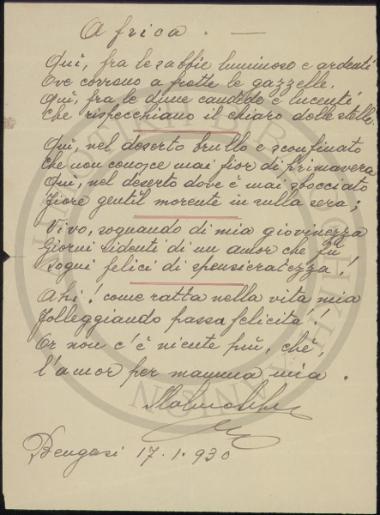 Africa. —
Qui, fra le sabbie luminose e ardenti
Ove corrono a frotte le gazzelle.
Qui, fra le dune candide e lucenti
Che rispecchiano il chiaro delle stelle.
Qui, nel deserto brullo e sconfinato
Che non conosce mai fior di primavera
Qui, nel deserto dove è mai sbocciato
Fiore gentil morente in sulla sera;
Vivo, sognando di mia giovinezza
Giorni ridenti di un amor che fu
Sogni felici di spensieratezza!
Ahi! come ratta nella vita mia
Folleggiando passa felicità!
Or non c'è niente più, chè,
L'amor per mamma mia.
Bengasi 17.1.930